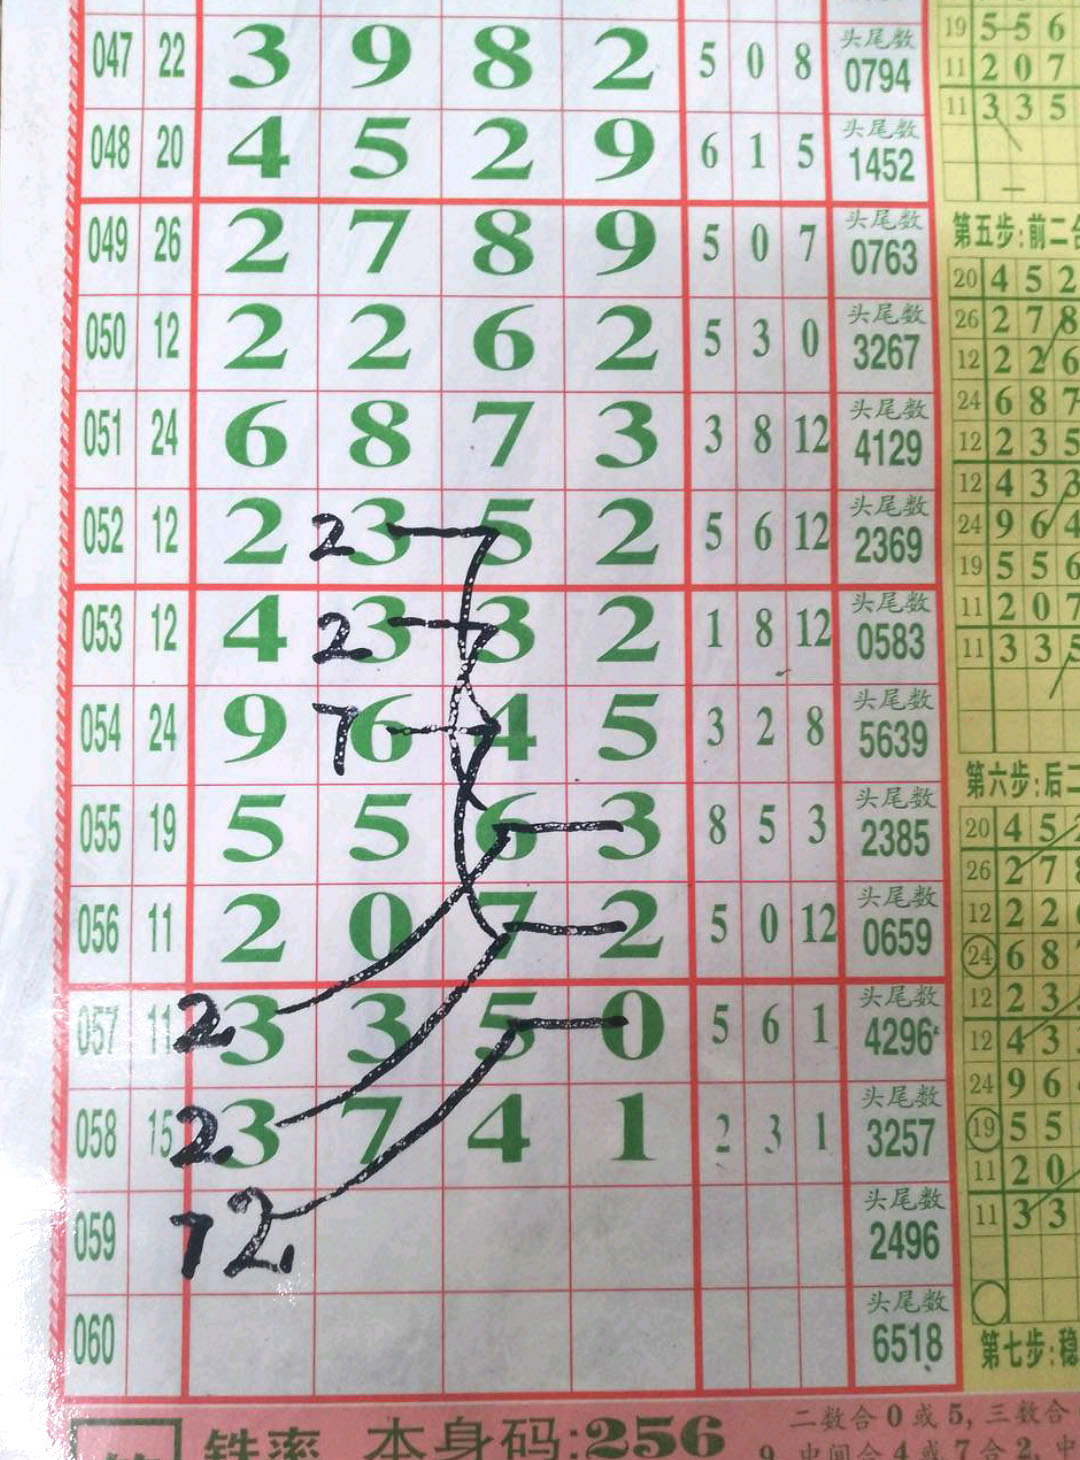 19 5 5 6
047 22 3 9 8 2 5 0 8 头尾数 0794
11 2 0 7
11 3 3 5
048 20 4 5 2 9 6 1 5 头尾数 1452
049 26 2 7 8 9 5 0 7 头尾数 0763
第五步:前二合
20 4 5 2
050 12 2 2 6 2 5 3 0 头尾数 3267
26 2 7 8
12 2 2 6
051 24 6 8 7 3 3 8 12 头尾数 4129
24 6 8 7
12 2 3 5
052 12 2 2 3 5 2 5 6 12 头尾数 2369
12 4 3 3
24 9 6 4
19 5 5 6
053 12 4 2 3 3 2 1 8 12 头尾数 0583
11 2 0 7
11 3 3 5
054 24 9 7 6 4 5 3 2 8 头尾数 5639
第六步:后二
055 19 5 5 6 3 8 5 3 头尾数 2385
20 4 5 2
26 2 7 8
056 11 2 0 7 2 5 0 12 头尾数 0659
12 2 2
24 6 8
057 11 2 3 3 5 0 5 6 1 头尾数 4296
12 2 3
12 4 3 3
24 9 6
058 15 2 3 7 4 1 2 3 1 头尾数 3257
19 5 5
11 2 0
059 7 2 头尾数 2496
11 3 3
060 头尾数 6518
第七步:稳
铁率 本身码:256
二数合0或5,三数合
9,中间合4或7合2,中